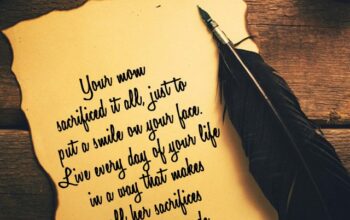 Your mom
sacrificed it all, just to
put a smile on your face.
Live every day of your life
in a way that makes
all her sacrifices